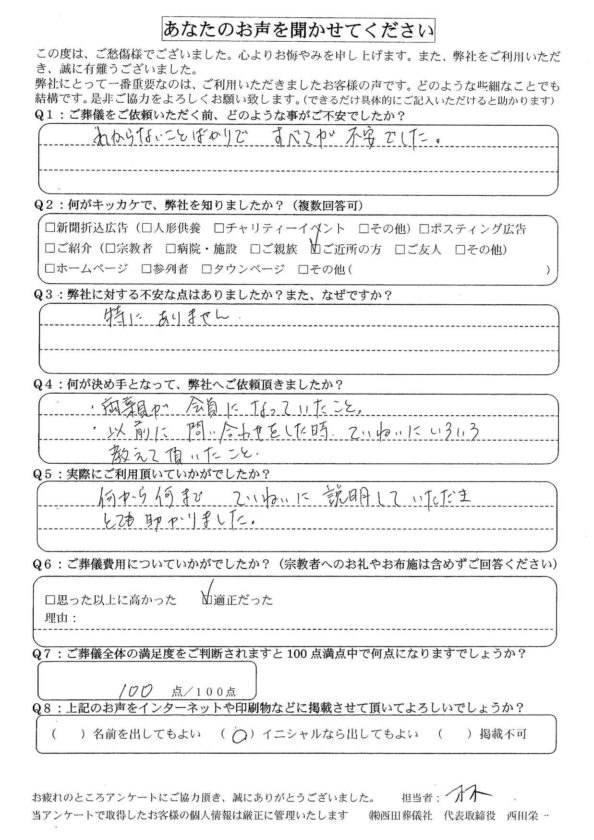 あなたのお声を聞かせてください
この度は、ご愁傷様でございました。心よりお悔やみを申し上げます。また、弊社をご利用いただ
き、誠に有難うございました。
弊社にとって一番重要なのは、ご利用いただきましたお客様の声です。どのような些細なことでも
結構です。是非ご協力をよろしくお願い致します。(できるだけ具体的にご記入いただけると助かります)
Q1：ご葬儀をご依頼いただく前、どのような事がご不安でしたか？
わからないことばかりで すべてが 不安でした。
Q2：何がキッカケで、弊社を知りましたか？（複数回答可）
□新聞折込広告（□人形供養 □チャリティーイベント □その他）□ポスティング広告
□ご紹介（□宗教者 □病院・施設 □ご親族 ☑ご近所の方 □ご友人 □その他）
□ホームページ □参列者 □タウンページ □その他（ ）
Q3：弊社に対する不安な点はありましたか？また、なぜですか？
特に ありません
Q4：何が決め手となって、弊社へご依頼頂きましたか？
・両親が 会員に なっていたこと。
・以前に 問い合わせをした時、ていねいにいろいろ
教えて頂いたこと
Q5：実際にご利用頂いていかがでしたか？
何から何まで ていねいに 説明して いただき
とても助かりました。
Q6：ご葬儀費用についていかがでしたか？（宗教者へのお礼やお布施は含めずご回答ください）
□思った以上に高かった ☑適正だった
理由：
Q7：ご葬儀全体の満足度をご判断されますと100点満点中で何点になりますでしょうか？
100 点／100点
Q8：上記のお声をインターネットや印刷物などに掲載させて頂いてよろしいでしょうか？
（ ）名前を出してもよい （○）イニシャルなら出してもよい （ ）掲載不可
お疲れのところアンケートにご協力頂き、誠にありがとうございました。 担当者：林
当アンケートで取得したお客様の個人情報は厳正に管理いたします ㈱西田葬儀社 代表取締役 西田栄一